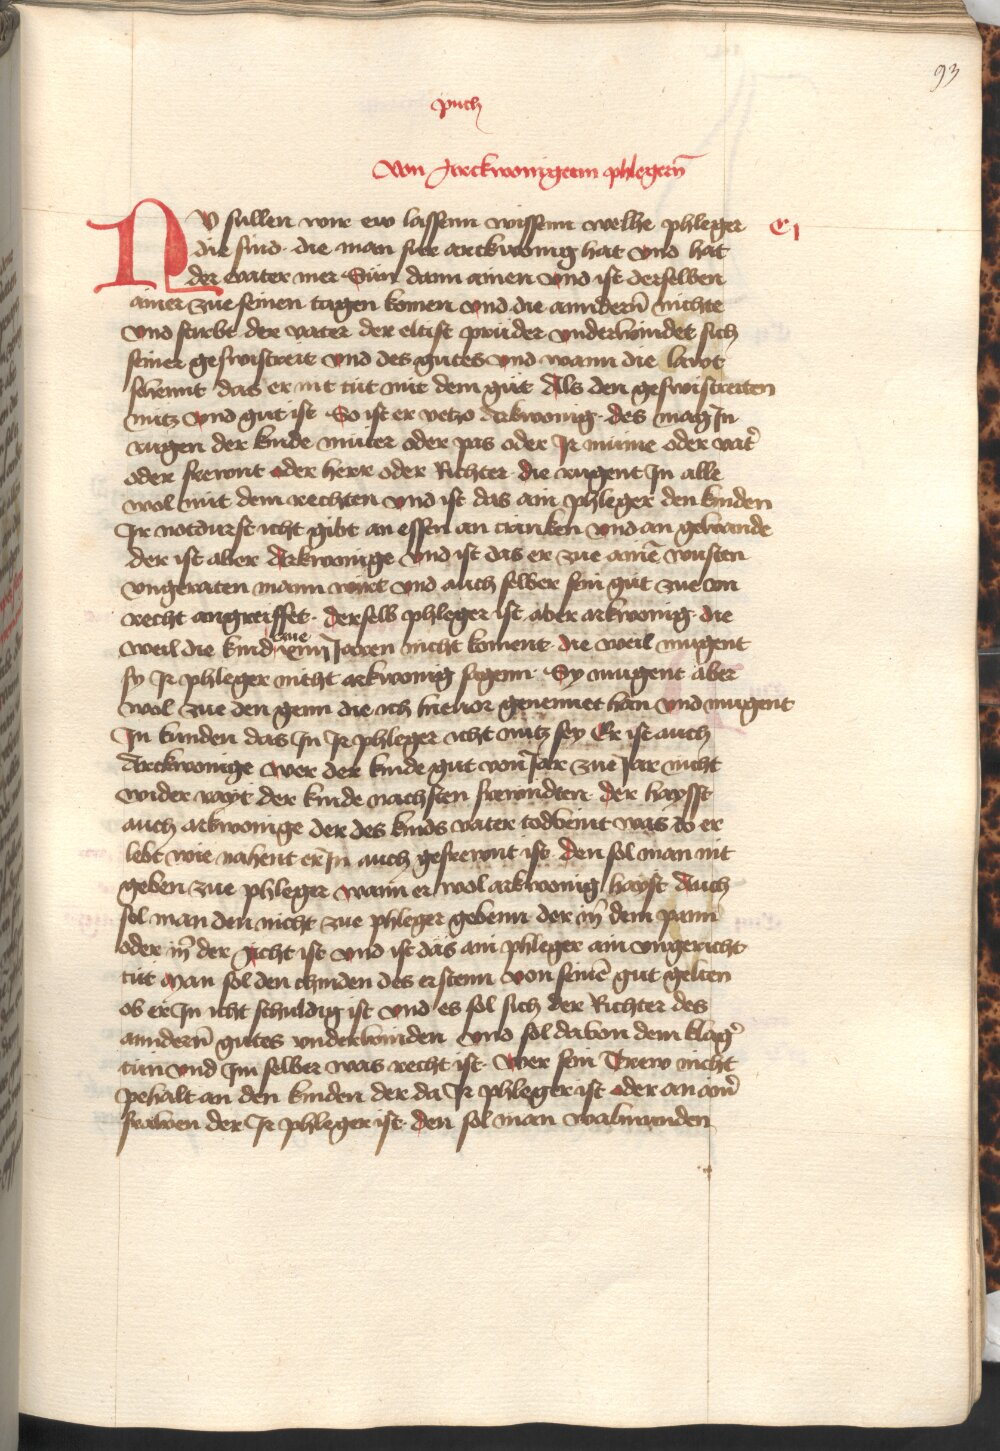 93
puch
Von Arckwonigenn phlegern̄
Nv sullen wir ew lassenn wissenn welhe phleger
Cj
die sind· die man fur arckwonig hat vnd hat
der vater mer Sün dann ainen vnd ist derselben
ainer zue seinen tagen komen vnd die anndern̄ nichte
vnd stirbt der vater der eltist prüder vnderwindet sich
seiner geswistreit vnd des gutes vnd wann die lawt
sehennt das er nit tüt mit dem güt Als den geswistreiten
nütz vnd gut ist So ist er yetzo arkwonig· des mag In
rugen der kinde müter oder pas oder Ir mume oder vat̃
oder frewnt oder herr oder Richter· die rugent In alle
wol mit dem rechten vnd ist das ain phleger den kinden
Ir notdurft icht gibt an essen an trinken vnd an gewande
der ist aber Arkwonige vnd ist das er zue ainē wusten
vngeraten mann wirt vnd auch selber sein güt zue vn
recht angreiffet· derselb phleger ist aber arkwonig· die
weil die kind zue xiiij Jaren nicht koment· die weil mugent
sy Ir phleger nicht arkwonig sagenn· Sy mugent aber
wol zue den genn die ich hieuor genennet han vnd mugent
In kunden das In Ir phleger icht nütz sey Er ist auch
Arckwonige wer der kinde gut von Jar zue Jar nicht
wider rayt der kinde nachsten frewndten· der haysst
auch arkwonige der des kinds vater todvent was do er
lebt wie nahent er In auch gefrewnt ist· den sol man nit
geben zue phleger wann er wol arkwonig hayst Auch
sol man den nicht zue phleger gebenn der in̄ dem pann
oder in̄ der Acht ist vnd ist das ain phleger ain vngericht
tüt Man sol den chinden des erstenn von seinē gut gelten
ob er In icht schuldig ist vnd es sol sich der Richter des
anndern̄ gutes vnderwinden vnd sol dauon dem klag̃
tün vnd Im selber was recht ist· Wer sein Trew nicht
pehalt an den kinden der da Ir phleger ist oder an ain̄
frawen der Ir phleger ist· den sol man